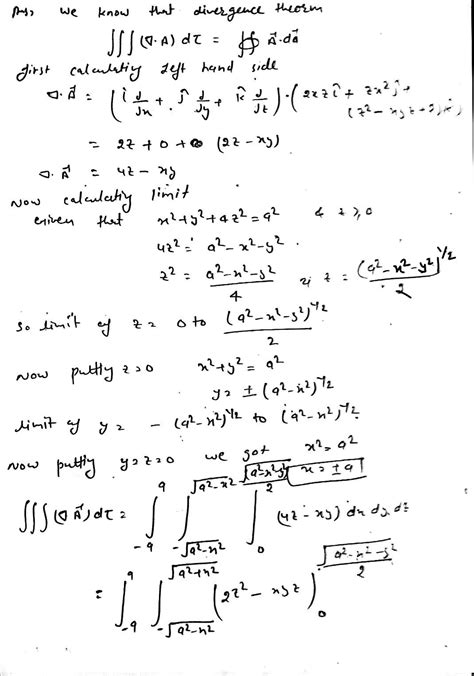 Ans, we know that divergence theorm
∭ (∇·A) dτ = ∯ A⃗·da⃗
first calculatiy left hand side
∇·A⃗ = (î d/dx + ĵ d/dy + k̂ d/dz)·(2xz î + zx² ĵ +
(z² - xyz + 2)
= 2z + 0 + (2z - xy)
∇·A⃗ = 4z - xy
Now calculatiy limit
Given that x² + y² + 4z² = a² & z ≥ 0
4z² = a² - x² - y²
z² = (a² - x² - y²)/4 z = (a² - x² - y²)^1/2 / 2
So limit of z = 0 to (a² - x² - y²)^1/2 / 2
Now puttly z = 0 x² + y² = a²
y = ± (a² - x²)^1/2
limit of y = - (a² - x²)^1/2 to (a² - x²)^1/2
Now puttly y = z = 0 we got x² = a²
x = ± a
∭ (∇·A⃗) dτ = ∫_{-a}^{a} ∫_{-√(a²-x²)}^{√(a²-x²)} ∫_{0}^{√(a²-x²-y²)/2} (4z - xy) dx dy dz
= ∫_{-a}^{a} ∫_{-√(a²-x²)}^{√(a²+x²)} (2z² - xyz)_{0}^{√(a²-x²-y²)/2}